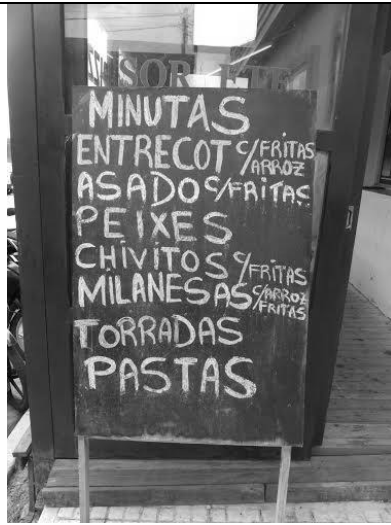 MINUTAS
ENTRECOT C/FRITAS
/ARROZ
ASADO C/FRITAS
PEIXES
CHIVITOS C/FRITAS
MILANESAS C/ARROZ
/FRITAS
TORRADAS
PASTAS